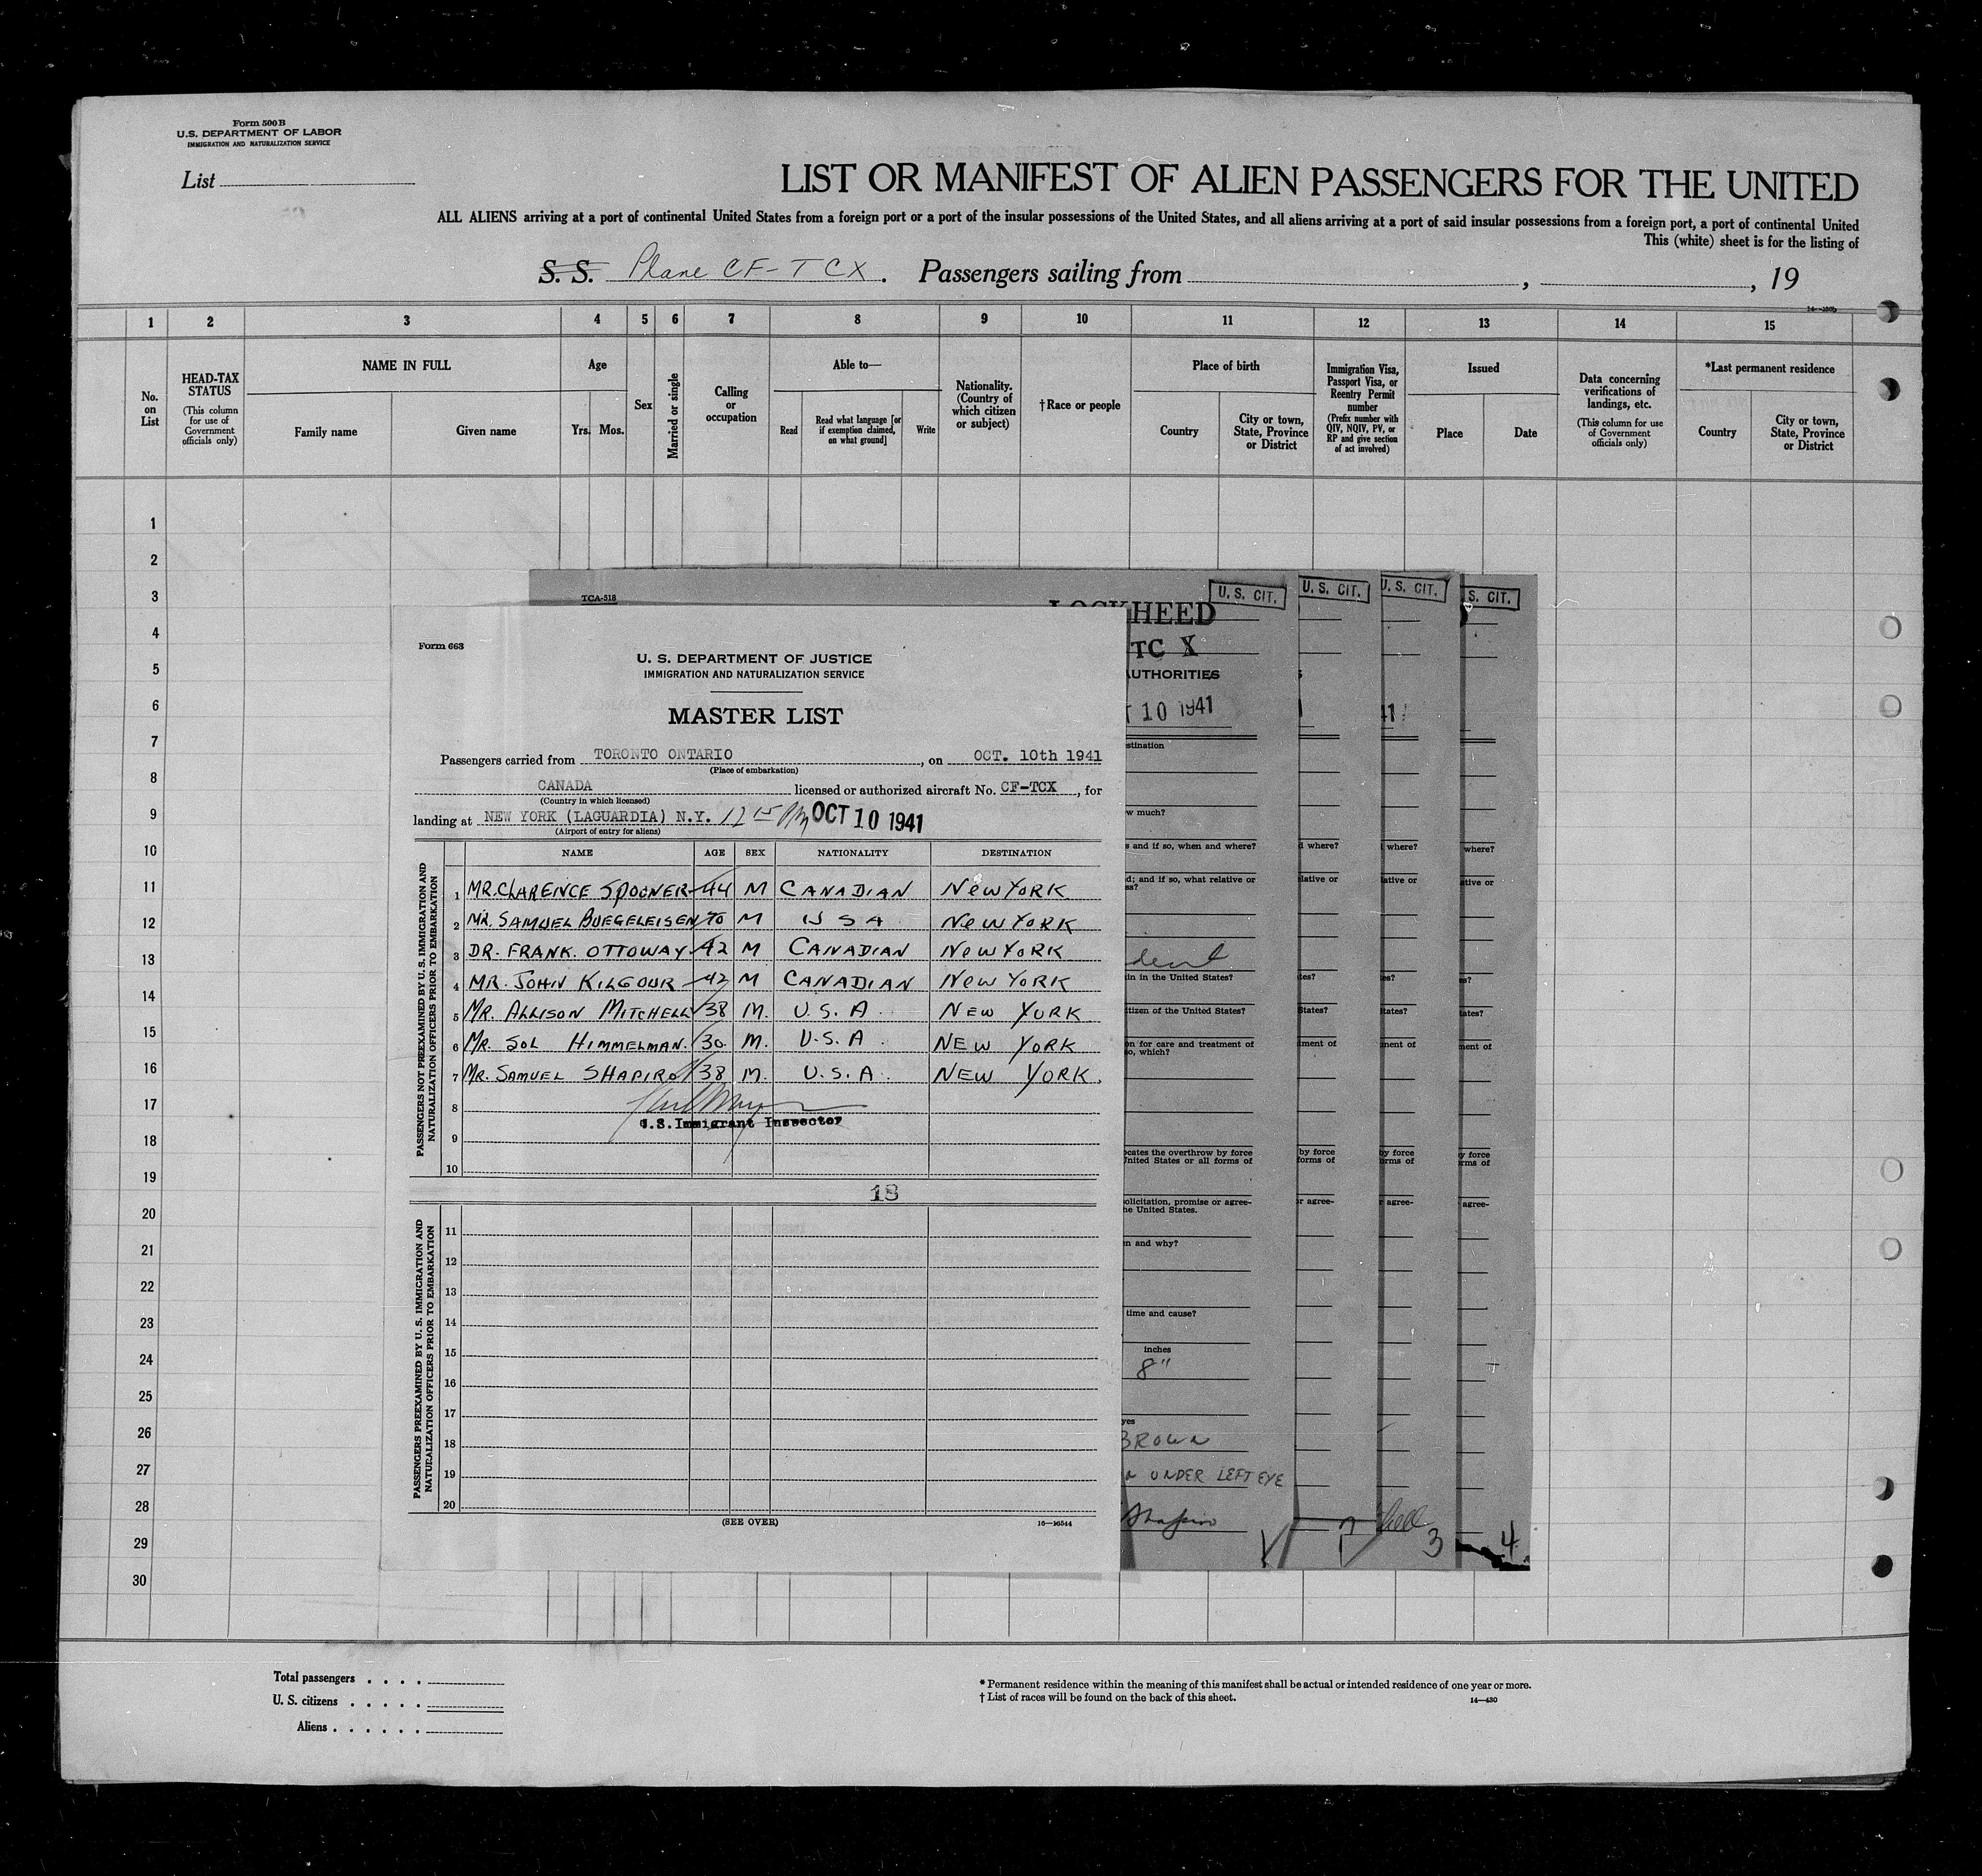 Form 500 B
U. S. DEPARTMENT OF LABOR
IMMIGRATION AND NATURALIZATION SERVICE
List
LIST OR MANIFEST OF ALIEN PASSENGERS FOR THE UNITED
ALL ALIENS arriving at a port of continental United States from a foreign port or a port of the insular possessions of the United States, and all aliens arriving at a port of said insular possessions from a foreign port, a port of continental United
This (white) sheet is for the listing of
S. S. Plane CF-TCX. Passengers sailing from , , 19
1 2 3 4 5 6 7 8 9 10 11 12 13 14 15
No. on List
HEAD-TAX STATUS
(This column for use of Government officials only)
NAME IN FULL
Family name
Given name
Age
Yrs. Mos.
Sex
Married or single
Calling or occupation
Able to—
Read
Read what language [or if exemption claimed, on what ground]
Write
Nationality. (Country of which citizen or subject)
†Race or people
Place of birth
Country
City or town, State, Province or District
Immigration Visa, Passport Visa, or Reentry Permit number
(Prefix number with QIV, NQIV, PV, or RP and give section of act involved)
Issued
Place
Date
Data concerning verifications of landings, etc.
(This column for use of Government officials only)
*Last permanent residence
Country
City or town, State, Province or District
1
2
3
4
5
6
7
8
9
10
11
12
13
14
15
16
17
18
19
20
21
22
23
24
25
26
27
28
29
30
TCA-518
Form 663
U. S. DEPARTMENT OF JUSTICE
IMMIGRATION AND NATURALIZATION SERVICE
MASTER LIST
Passengers carried from TORONTO ONTARIO, on OCT. 10th 1941
(Place of embarkation)
CANADA licensed or authorized aircraft No. CF-TCX, for
(Country in which licensed)
landing at NEW YORK (LAGUARDIA) N.Y. 12 15 PM OCT 10 1941
(Airport of entry for aliens)
NAME AGE SEX NATIONALITY DESTINATION
PASSENGERS NOT PREEXAMINED BY U. S. IMMIGRATION AND NATURALIZATION OFFICERS PRIOR TO EMBARKATION
1 MR. CLARENCE SPOONER 44 M CANADIAN NEW YORK
2 MR. SAMUEL BUEGELEISEN 70 M U S A NEW YORK
3 DR. FRANK. OTTOWAY 42 M CANADIAN NEW YORK
4 MR. JOHN KILGOUR 42 M CANADIAN NEW YORK
5 MR. ALLISON MITCHELL 38 M. U. S. A NEW YORK
6 MR. SOL HIMMELMAN. 30. M. U. S. A. NEW YORK
7 MR. SAMUEL SHAPIRO 38 M. U. S. A. NEW YORK.
8
U.S. Immigrant Inspector
9
10
18
PASSENGERS PREEXAMINED BY U. S. IMMIGRATION AND NATURALIZATION OFFICERS PRIOR TO EMBARKATION
11
12
13
14
15
16
17
18
19
20
(SEE OVER)
16—16544
LOCKHEED
TC X
AUTHORITIES
10 1941
U. S. CIT.
U. S. CIT.
U. S. CIT.
S. CIT.
w much?
s and if so, when and where?
d; and if so, what relative or
in in the United States?
itizen of the United States?
on for care and treatment of
o, which?
ocates the overthrow by force
United States or all forms of
olicitation, promise or agree-
he United States.
n and why?
time and cause?
inches
8"
yes
BROWN
UNDER LEFT EYE
Shapiro
3
4
Total passengers
U. S. citizens
Aliens
* Permanent residence within the meaning of this manifest shall be actual or intended residence of one year or more.
† List of races will be found on the back of this sheet.
14—430